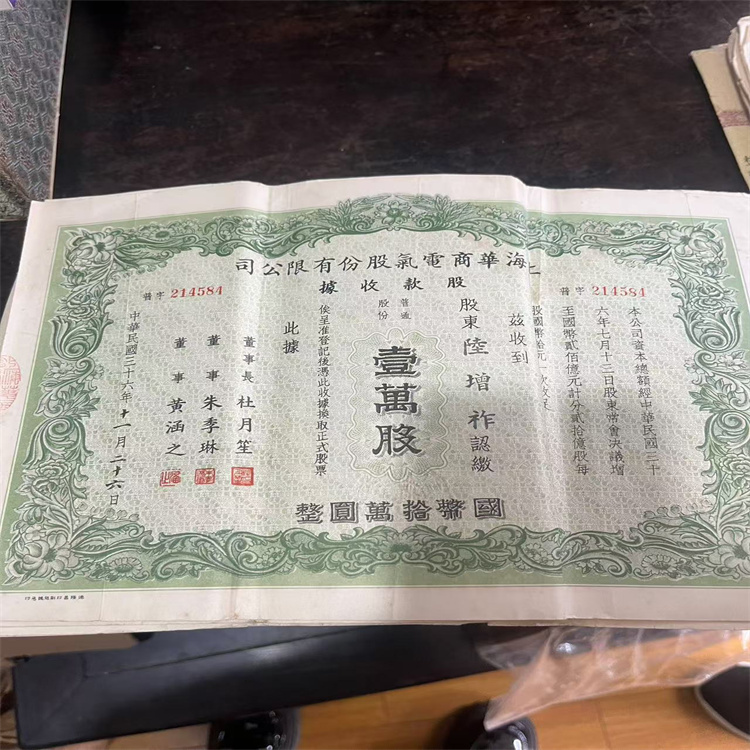 上海華商電氣股份有限公司
股款收據
普字 214584
普字 214584
本公司資本總額經中華民國三十
六年七月十三日股東常會決議增
至國幣貳佰億元計分貳拾億股每
股國幣拾元一次收足
茲收到
股東 陸增祚 認繳
普通
股份
壹萬股
國幣拾萬圓整
俟呈准登記後憑此收據換取正式股票
此據
董事長 杜月笙
董事 朱季琳
董事 黃涵之
中華民國三十六年十一月二十六日